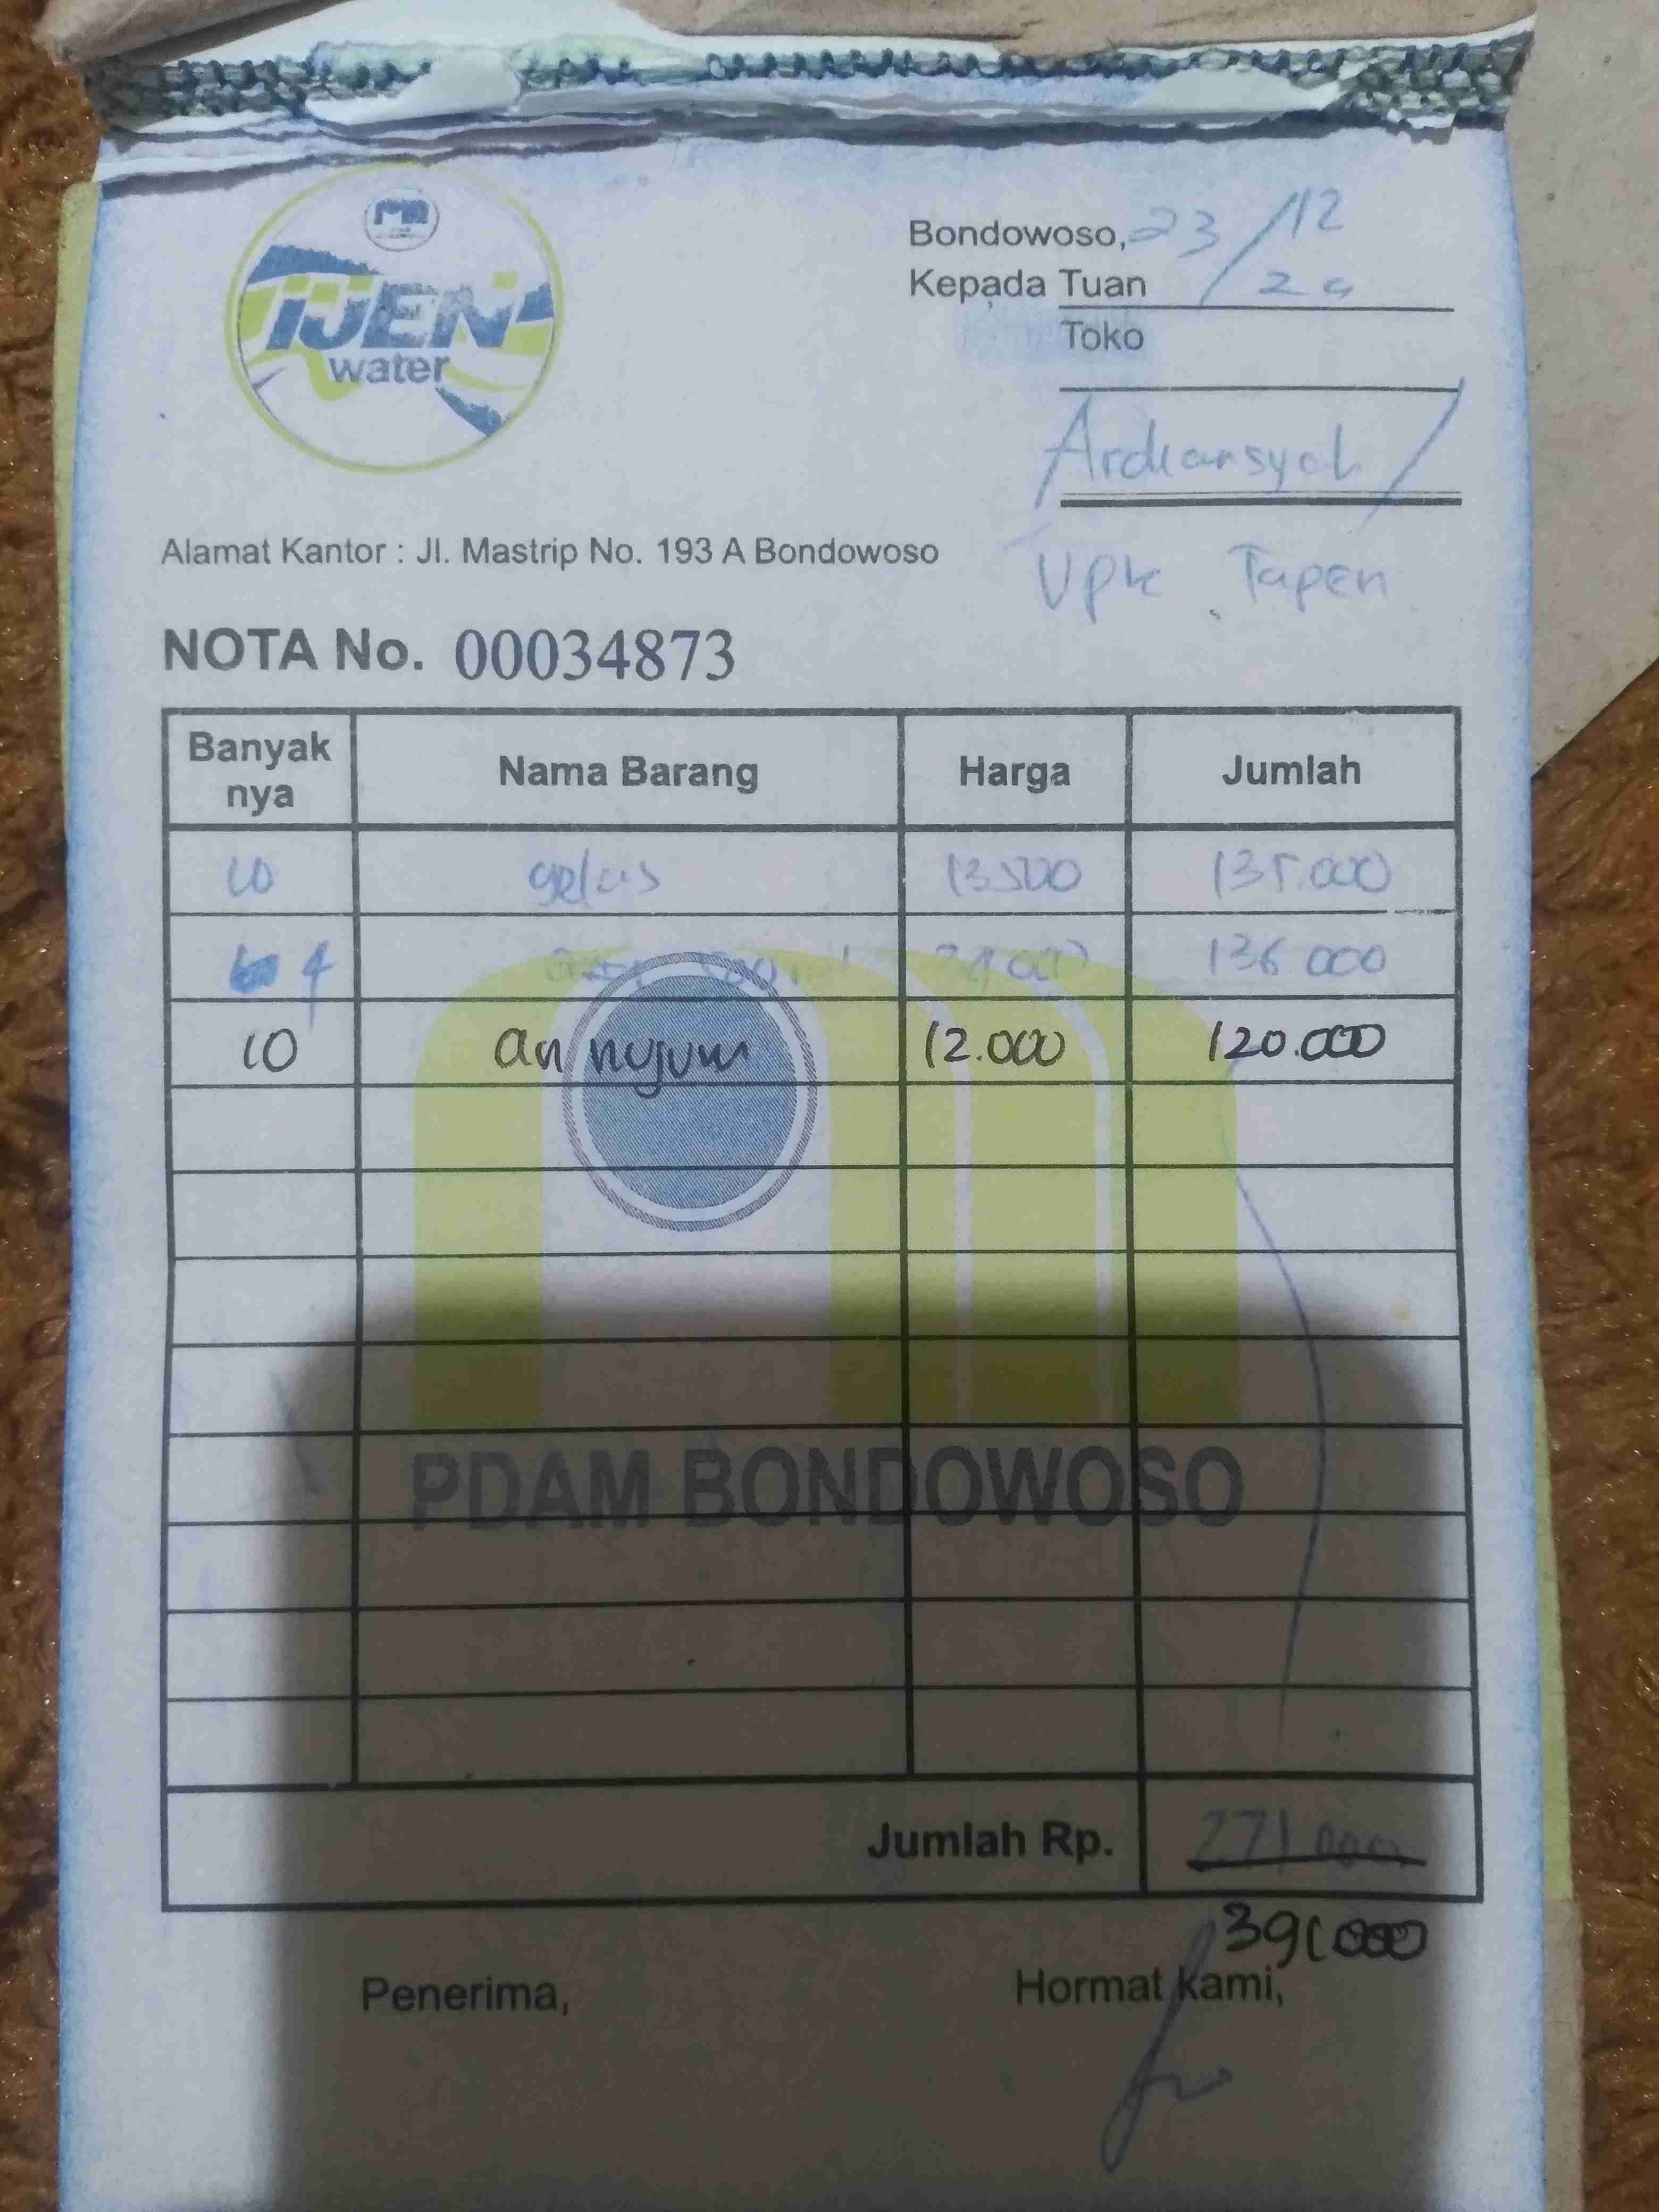 IJEN
water
Bondowoso, 23/12
Kepada Tuan 24
Toko
Ardiansyah
Upk Tapen
Alamat Kantor : Jl. Mastrip No. 193 A Bondowoso
NOTA No. 00034873
Banyak nya Nama Barang Harga Jumlah
10 gelas 13500 135.000
4 136.000
10 an nujum 12.000 120.000
PDAM BONDOWOSO
Jumlah Rp. 271.000
391.000
Penerima, Hormat kami,